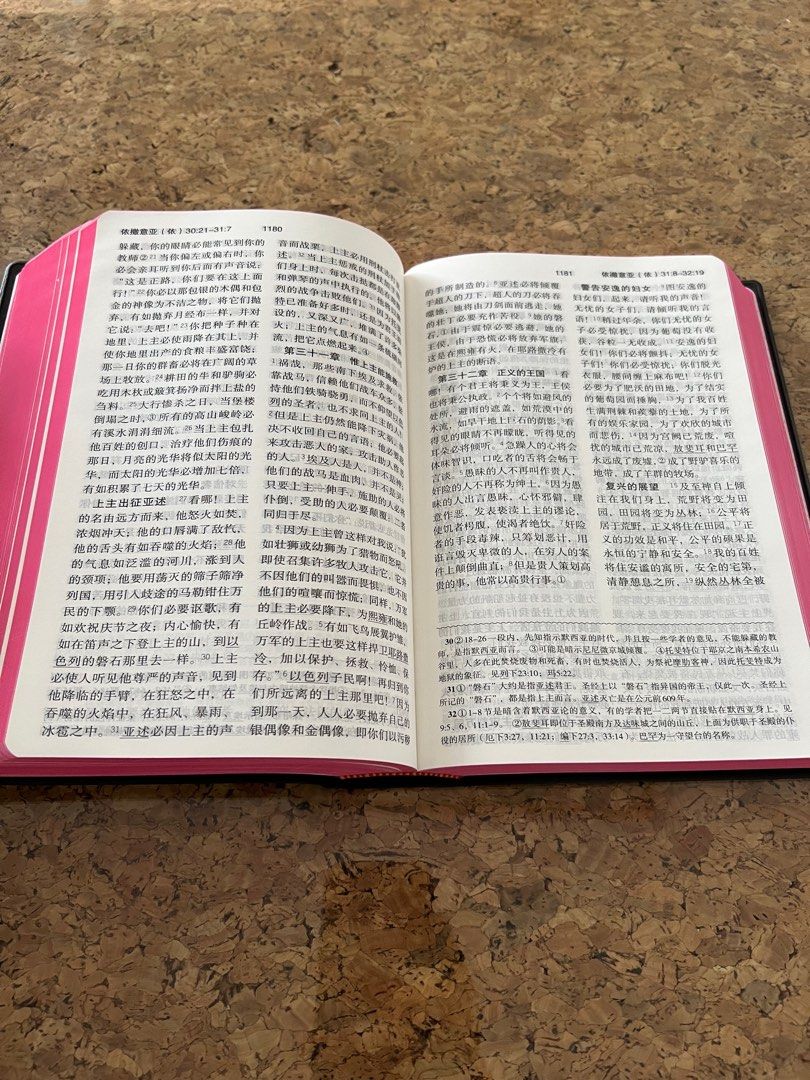 依撒意亚（依）30:21–31:7 1180
躲藏，你的眼睛必能常见到你的
教师②²¹当你偏左或偏右时，你
必会亲耳听到你后面有声音说：
“这是正路，你们要在这上面
行！”²²你必以那包银的木偶和包
金的神像为不洁之物，将它们抛
弃，有如抛弃月经布一样，并对
它说：“去吧！”²³你把种子种在
地里，上主必使雨降在其上，并
使你地里出产的食粮丰盛富饶；
那一日你的群畜必将在广阔的草
场上牧放。²⁴耕田的牛和驴驹必
吃用木杴或簸箕扬净而拌上盐的
刍料。²⁵大行惨杀之日，当堡楼
倒塌之时，③所有的高山峻岭必
有溪水涓涓细流。²⁶当上主包扎
他百姓的创口，治疗他们伤痕的
那日，月亮的光华将似太阳的光
华，而太阳的光华必增加七倍，
有如积累了七天的光华。
上主出征亚述 ²⁷看哪！上主
的名由远方而来，他怒火如焚，
浓烟冲天；他的口唇满了敌忾，
他的舌头有如吞噬的火焰；²⁸他
的气息如泛滥的河川，涨到人
的颈项；他要用荡灭的筛子筛净
列国，用引人歧途的马勒钳住万
民的下颚。²⁹你们必要讴歌，有
如欢祝庆节之夜；内心愉快，有
如在笛声之下登上主的山，到以
色列的磐石那里去一样。³⁰上主
必使人听见他尊严的声音，见到
他降临的手臂，在狂怒之中，在
吞噬的火焰中，在狂风、暴雨、
冰雹之中。³¹亚述必因上主的声
音而战栗，上主必用刑杖
述。³²当上主惩戒的刑杖
们身上时，每次击挞都
和弹琴的声中执行的，
烈的战争击败他们。³³因为
特已准备好多时，还是为
设的，又深又广，堆满了
火；上主的气息有如一条
流，把它点燃起来。④
第三十一章 惟上主能
¹祸哉，那些南下埃及求救
靠战马，信赖他们战车众多
恃他们铁骑骁勇，而不仰望
列的圣者，也不求问上主的
²但是上主仍然能降下灾祸
决不收回自己的言语；他必
来攻击恶人的家，攻击助人
的人。³埃及人是人，并不是
他们的战马是血肉，并不是
只要上主一伸手，施助的人必将
仆倒，受助的人必要颠覆，
同归于尽。
⁴因为上主曾这样对我说：
如壮狮或幼狮为了猎物而怒吼，
即使召集许多牧人攻击它，它
不因他们的叫嚣而畏惧，也不因
他们的喧嚷而惊慌；同样，万军
的上主必要下降，为熙雍和她的
丘岭作战。⁵有如飞鸟展翼护雏，
万军的上主也要这样捍卫耶路撒
冷，加以保护、拯救、怜恤、保
存。”⁶以色列子民啊！再归到你
们所远离的上主那里吧！⁷因为
到那一天，人人必要抛弃自己的
银偶像和金偶像，即你们以污秽
1181 依撒意亚（依）31:8–32:19
的手所制造的。⁸亚述必将倾覆
于超人的刀下，超人的刀必将吞
噬她；她将由刀剑面前逃走，她
的壮丁必要充作苦役。⁹她的磐
石，①由于震惊必要逃避，她的
王侯，由于恐慌必将放弃军旗：
这是在熙雍有火，在耶路撒冷有
炉的上主的断语。
第三十二章 正义的王国 ¹看
哪！有个君王将秉义为王，王侯
也将秉公执政。²个个将如避风的
处所，避雨的遮盖，如荒漠中的
水流，如旱干地上巨石的荫影。³看
得见的眼睛不再曚昽，听得见的
耳朵必将倾听。⁴急躁人的心将会
体味智识，口吃者的舌将会畅于
言谈。⁵愚昧的人不再叫作贵人，
奸险的人不再称为绅士，⁶因为愚
昧的人出言愚昧，心怀邪僻，肆
意作恶，发表亵渎上主的谬论，
使饥者枵腹，使渴者绝饮。⁷奸险
者的手段毒辣，只筹划恶计，用
谎言毁灭卑微的人，在穷人的案
件上颠倒曲直；⁸但是贵人策划高
贵的事，他常以高贵行事。①
警告安逸的妇女 ⁹图安逸的
妇女们，起来，请听我的声音！
无忧的女子们，请倾听我的言
语！¹⁰稍过年余，你们无忧的女
子必受惊扰，因为葡萄没有收
获，谷粒一无收成。¹¹安逸的妇
女们！你们必将颤抖；无忧的女
子们！你们必受惊扰；你们脱光
衣服，腰间缠上麻布吧！¹²你们
必要为了肥沃的田地，为了结实
的葡萄园而捶胸，¹³为了我百姓
生满荆棘和蒺藜的土地，为了所
有的娱乐家园，为了欢欣的城市
而悲伤，¹⁴因为宫阙已荒废，喧
扰的城市已荒凉，敖斐耳和巴罕
永远成了废墟，②成了野驴喜乐的
地带，成了羊群的牧场。
复兴的展望 ¹⁵及至神自上倾
注在我们身上，荒野将变为田
园，田园将变为丛林；¹⁶公平将
居于荒野，正义将住在田园。¹⁷正
义的功效是和平，公平的硕果是
永恒的宁静和安全。¹⁸我的百姓
将住安谧的寓所，安全的宅第，
清静憩息之所，¹⁹纵然丛林全被
30②18–26一段内，先知指示默西亚的时代，并且按一些学者的意见，不能躲藏的教
师，是指默西亚而言。 ③可能是暗示尼尼微京城倾覆。 ④托斐特位于耶京之南本希农山
谷里，人多在此焚烧废物和死畜，有时也焚烧活人，为祭祀摩肋客神，因此托斐特成为
地狱的象征。见列下23:10；玛5:22。
31①“磐石”大约是指亚述君王。圣经上以“磐石”指异国的帝王，仅此一次。圣经上
所记的“磐石”，都是指上主而言。亚述灭亡是在公元前609年。
32①1–8节是暗含着默西亚论的意义，有的学者把一二两节直接贴在默西亚身上。见
9:5、6，11:1–9。 ②敖斐耳即位于圣殿南方及达味城之间的山丘，上面为供职于圣殿的仆
役的居所（厄下3:27，11:21；编下27:3，33:14）。巴罕为一守望台的名称。